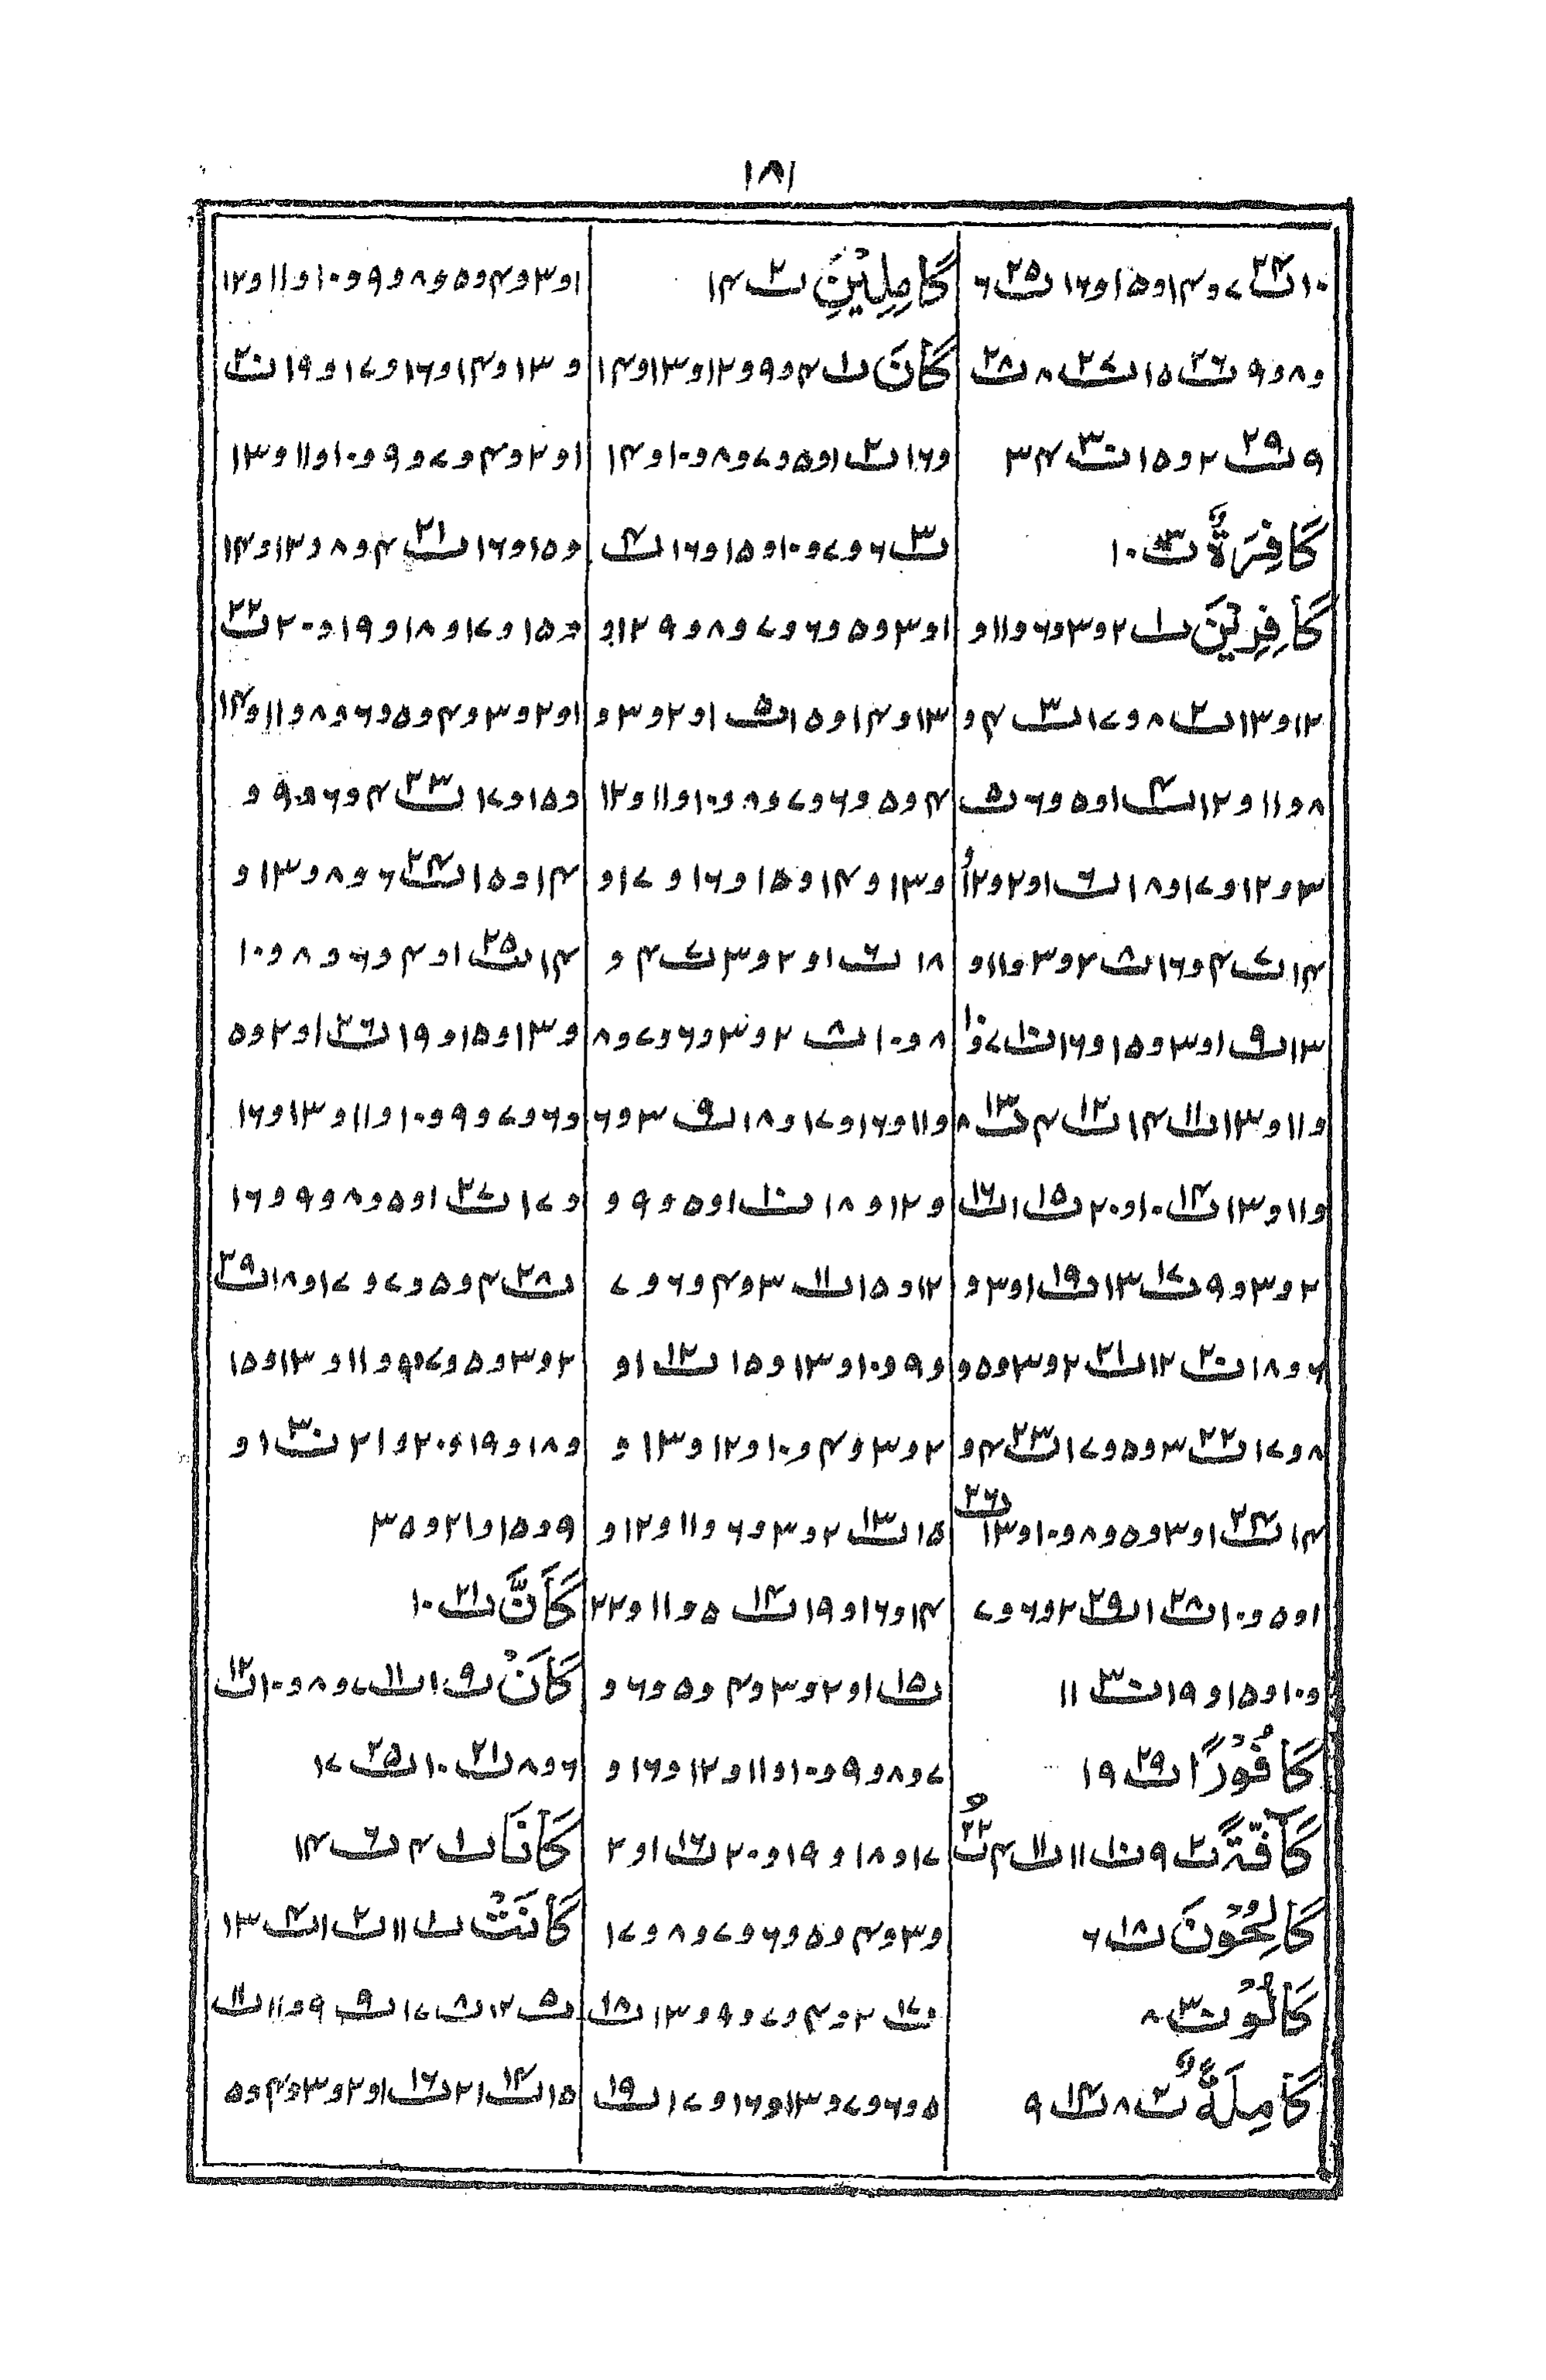 ۱۸۱
۱۰ ت۲۴ ۷ و ۱۴ و ۱۵ و ۱۶ ت۲۵ ۶
و ۸ و ۹ ت۲۶ ۱۵ ت۲۷ ۸ ت۲۸
۹ ت۲۹ ۲ و ۱۵ ت۳۰ ۳۴
كَافِرَةٌ ت۳ ۱۰
كَافِرِيْنَ ت۱ ۲ و ۳ و ۶ و ۱۱ و
۱۲ و ۱۳ ت۲ ۸ و ۱۷ ت۳ ۴ و
۸ و ۱۱ و ۱۲ ت۴ ۱ و ۵ و ۶ ت۵
۳ و ۱۲ و ۱۷ و ۱۸ ت۶ ۱ و ۲ و ۱۲ و
۱۴ ت۷ ۴ و ۱۶ ت۸ ۲ و ۳ و ۱۱ و
۱۳ ت۹ ۱ و ۳ و ۱۵ و ۱۶ ت۱۰ ۷ و ۱۰
و ۱۱ و ۱۳ ت۱۱ ۱۴ ت۱۲ ۴ ت۱۳ ۸
و ۱۱ و ۱۳ ت۱۴ ۱۰ و ۲۰ ت۱۵ ۱ ت۱۶
۲ و ۳ و ۹ ت۱۷ ۱۳ ت۱۹ ۱ و ۳ و
۶ و ۱۸ ت۲۰ ۱۲ ت۲۱ ۲ و ۳ و ۵ و
۸ و ۱۷ ت۲۲ ۳ و ۵ و ۱۷ ت۲۳ ۴ و
۱۴ ت۲۴ ۱ و ۳ و ۵ و ۸ و ۱۰ و ۱۳ ت۲۶
۱ و ۵ و ۱۰ ت۲۸ ۱ ت۲۹ ۲ و ۶ و ۷
و ۱۰ و ۱۵ و ۱۹ ت۳۰ ۱۱
كَافُوْرًا ت۲۹ ۱۹
كَآفَّةً ت۲ ۹ ت۱۰ ۱۱ ت۱۱ ۴ و ت۲۲
كَالِحُوْنَ ت۱۸ ۶
كَالُوْ ت۳۰ ۸
كَامِلَةٌ ت۲ ۸ ت۱۴ ۹
كَامِلِيْنَ ت۲ ۱۴
كَانَ ت۱ ۴ و ۹ و ۱۲ و ۱۳ و ۱۴
و ۱۶ ت۲ ۱ و ۵ و ۷ و ۸ و ۱۰ و ۱۴
ت۳ ۶ و ۷ و ۱۰ و ۱۵ و ۱۶ ت۴
۱ و ۳ و ۵ و ۶ و ۷ و ۸ و ۹ و ۱۲ و
۱۳ و ۱۴ و ۱۵ ت۵ ۱ و ۲ و ۳ و
۴ و ۵ و ۶ و ۷ و ۸ و ۱۰ و ۱۱ و ۱۲
و ۱۳ و ۱۴ و ۱۵ و ۱۶ و ۱۷ و
۱۸ ت۶ ۱ و ۲ و ۳ ت۷ ۴ و
۸ و ۱۰ ت۸ ۲ و ۳ و ۶ و ۷ و ۸
و ۱۱ و ۱۶ و ۱۷ و ۱۸ ت۹ ۳ و ۶
و ۱۲ و ۱۸ ت۱۰ ۱ و ۵ و ۹ و
۱۲ و ۱۵ ت۱۱ ۳ و ۴ و ۶ و ۷
و ۹ و ۱۰ و ۱۳ و ۱۵ ت۱۲ ۱ و
۲ و ۳ و ۴ و ۱۰ و ۱۲ و ۱۳ و
۱۵ ت۱۳ ۲ و ۳ و ۶ و ۱۱ و ۱۲ و
۱۴ و ۱۶ و ۱۹ ت۱۴ ۵ و ۱۱ و ۲۲
ت۱۵ ۱ و ۲ و ۳ و ۴ و ۵ و ۶ و
۷ و ۸ و ۹ و ۱۰ و ۱۱ و ۱۲ و ۱۶ و
۱۷ و ۱۸ و ۱۹ و ۲۰ ت۱۶ ۱ و ۲
و ۳ و ۴ و ۵ و ۶ و ۷ و ۸ و ۱۷
ت۱۷ ۲ و ۴ و ۷ و ۹ و ۱۳ ت۱۸
۵ و ۶ و ۷ و ۱۳ و ۱۶ و ۱۷ ت۱۹
۱ و ۳ و ۴ و ۵ و ۸ و ۹ و ۱۰ و ۱۱ و ۱۲
و ۱۳ و ۱۴ و ۱۶ و ۱۷ و ۱۹ ت۲۰
۱ و ۲ و ۴ و ۷ و ۹ و ۱۰ و ۱۱ و ۱۳
و ۱۵ و ۱۶ ت۲۱ ۴ و ۸ و ۱۳ و ۱۴
و ۱۵ و ۱۷ و ۱۸ و ۱۹ و ۲۰ ت۲۲
۱ و ۲ و ۳ و ۴ و ۵ و ۶ و ۸ و ۱۱ و ۱۴
و ۱۵ و ۱۷ ت۲۳ ۴ و ۶ و ۹ و
۱۴ و ۱۵ ت۲۴ ۶ و ۸ و ۱۳ و
۱۴ ت۲۵ ۱ و ۴ و ۶ و ۸ و ۱۰
و ۱۳ و ۱۵ و ۱۹ ت۲۶ ۱ و ۲ و ۵
و ۶ و ۷ و ۹ و ۱۰ و ۱۱ و ۱۳ و ۱۶
و ۱۷ ت۲۷ ۱ و ۵ و ۸ و ۹ و ۱۶
ت۲۸ ۴ و ۵ و ۷ و ۱۷ و ۱۸ ت۲۹
۲ و ۳ و ۵ و ۷ و ۹ و ۱۱ و ۱۳ و ۱۵
و ۱۸ و ۱۹ و ۲۰ و ۲۱ ت۳۰ ۱ و
۹ و ۱۵ و ۲۱ و ۳۵
كَاَنَّ ت۲۱ ۱۰
كَاَنْ ت۹ ۱ ت۱۱ ۷ و ۸ و ۱۰ ت۱۲
۶ و ۸ ت۲۱ ۱۰ ت۲۵ ۱۷
كَانَا ت۱ ۴ ت۶ ۱۴
كَانَتْ ت۱ ۱۱ ت۲ ۱ ت۴ ۱۳
ت۵ ۱۲ ت۸ ۱۷ ت۹ ۹ و ۱۱ ت۱۱
۱۵ ت۱۴ ۲۱ ت۱۶ ۱ و ۲ و ۳ و ۴ و ۵